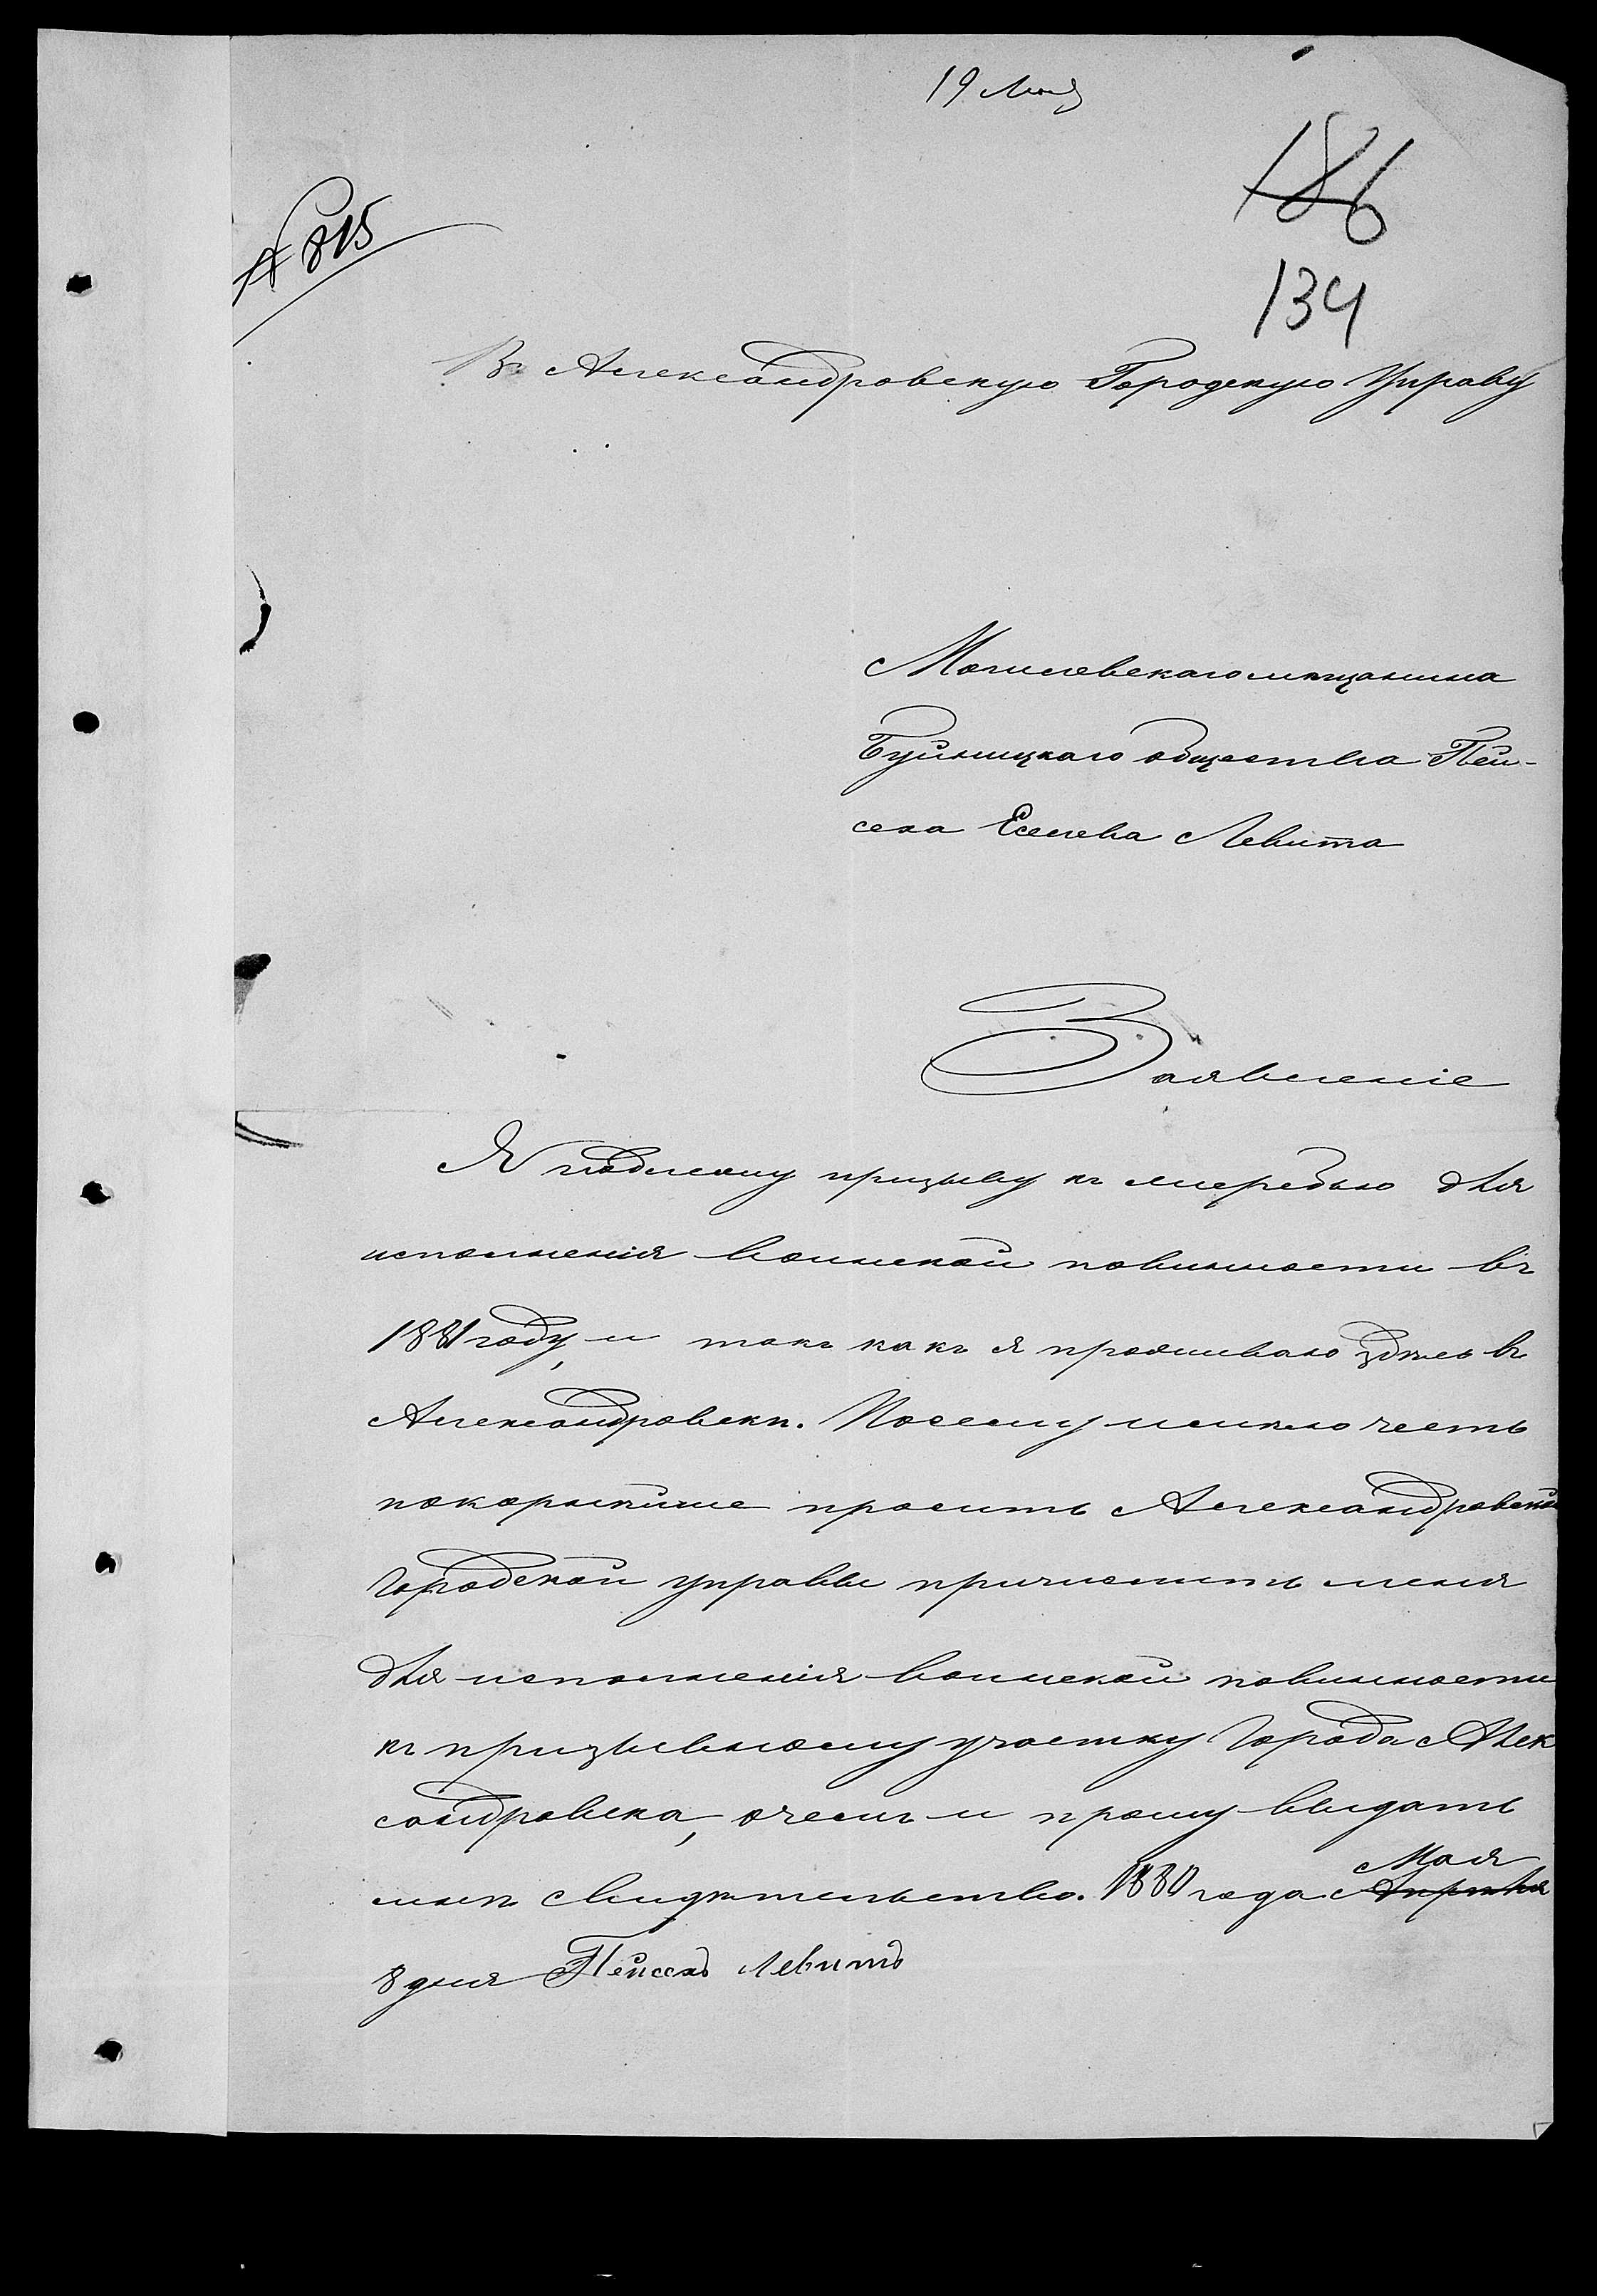 19 Мая
186
134
№ 815
Въ Александровскую Городскую Управу
Могилевскаго мѣщанина
Буйницкаго общества Пей-
сека Еселева Левита
Заявленіе
Я подлежу призыву къ жеребью для
исполненія воинской повинности въ
1881 году, и такъ какъ я проживаю здѣсь въ
Александровскѣ. Посему имѣю честь
покорнѣйше просить Александровской
Городской управы причислить меня
для исполненія воинской повинности
къ призывному участку Города Алек
сандровска, о чемъ и прошу выдать
мнѣ свидѣтельство. 1880 года Апрѣля Мая
8 дня Пейсехъ Левитъ